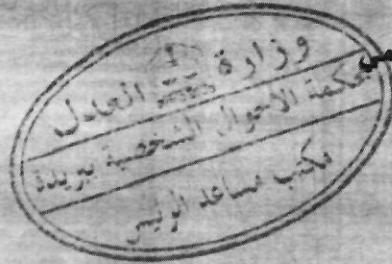 وزارة العدل
محكمة الأحوال الشخصية ببريدة
مكتب مساعد الرئيس